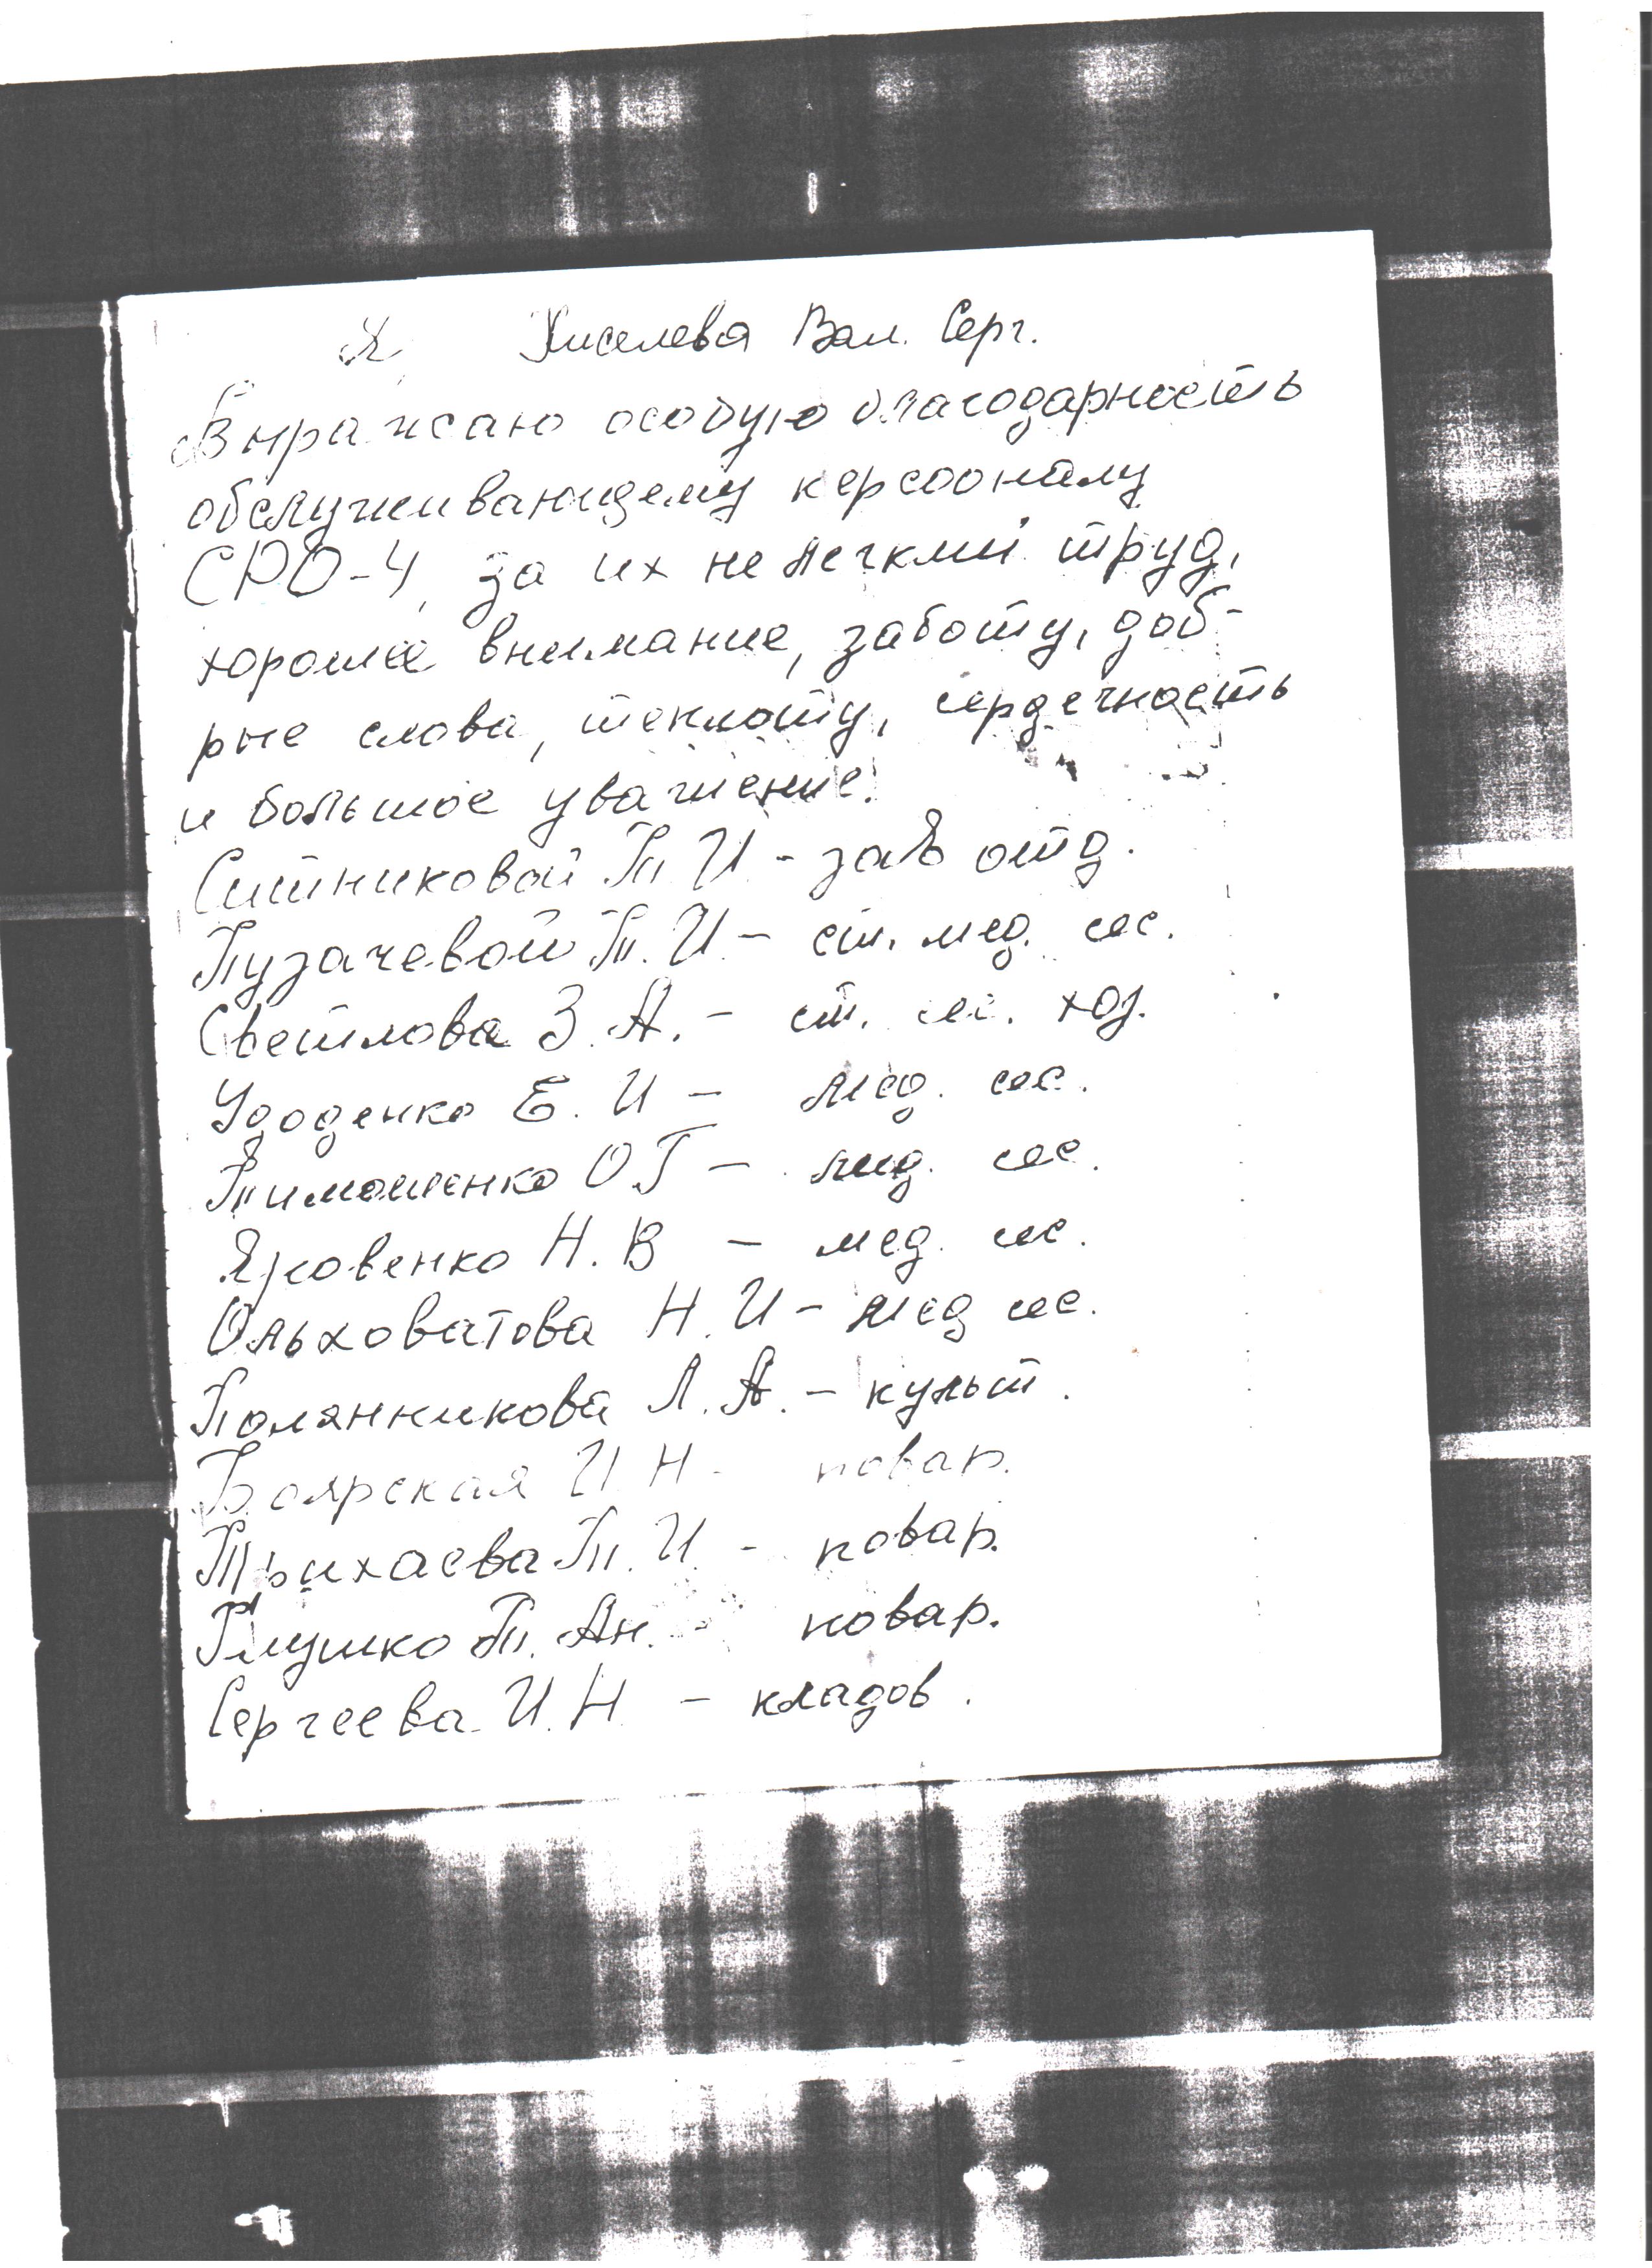 Я, Киселева Вал. Серг.
Выражаю особую благодарность
обслуживающему персооналу
СРО-4, за их нелегкий труд,
хорошее внимание, заботу, доб-
рые слова, теплоту, сердечность
и большое уважение.
Ситниковой Т. И - зав отд.
Пузачевой Т. И. - ст. мед. сес.
Светлова З. А. - ст. сес. хоз.
Удоденко Е. И - мед. сес.
Тимошенко О Г - мед. сес.
Яковенко Н. В - мед. сес.
Ольховатова Н. И - мед сес.
Полянникова Л. А. - культ.
Боярская И Н - повар.
Т. И. - повар.
Глушко Т. Ан. - повар.
Сергеева И. Н - кладов.